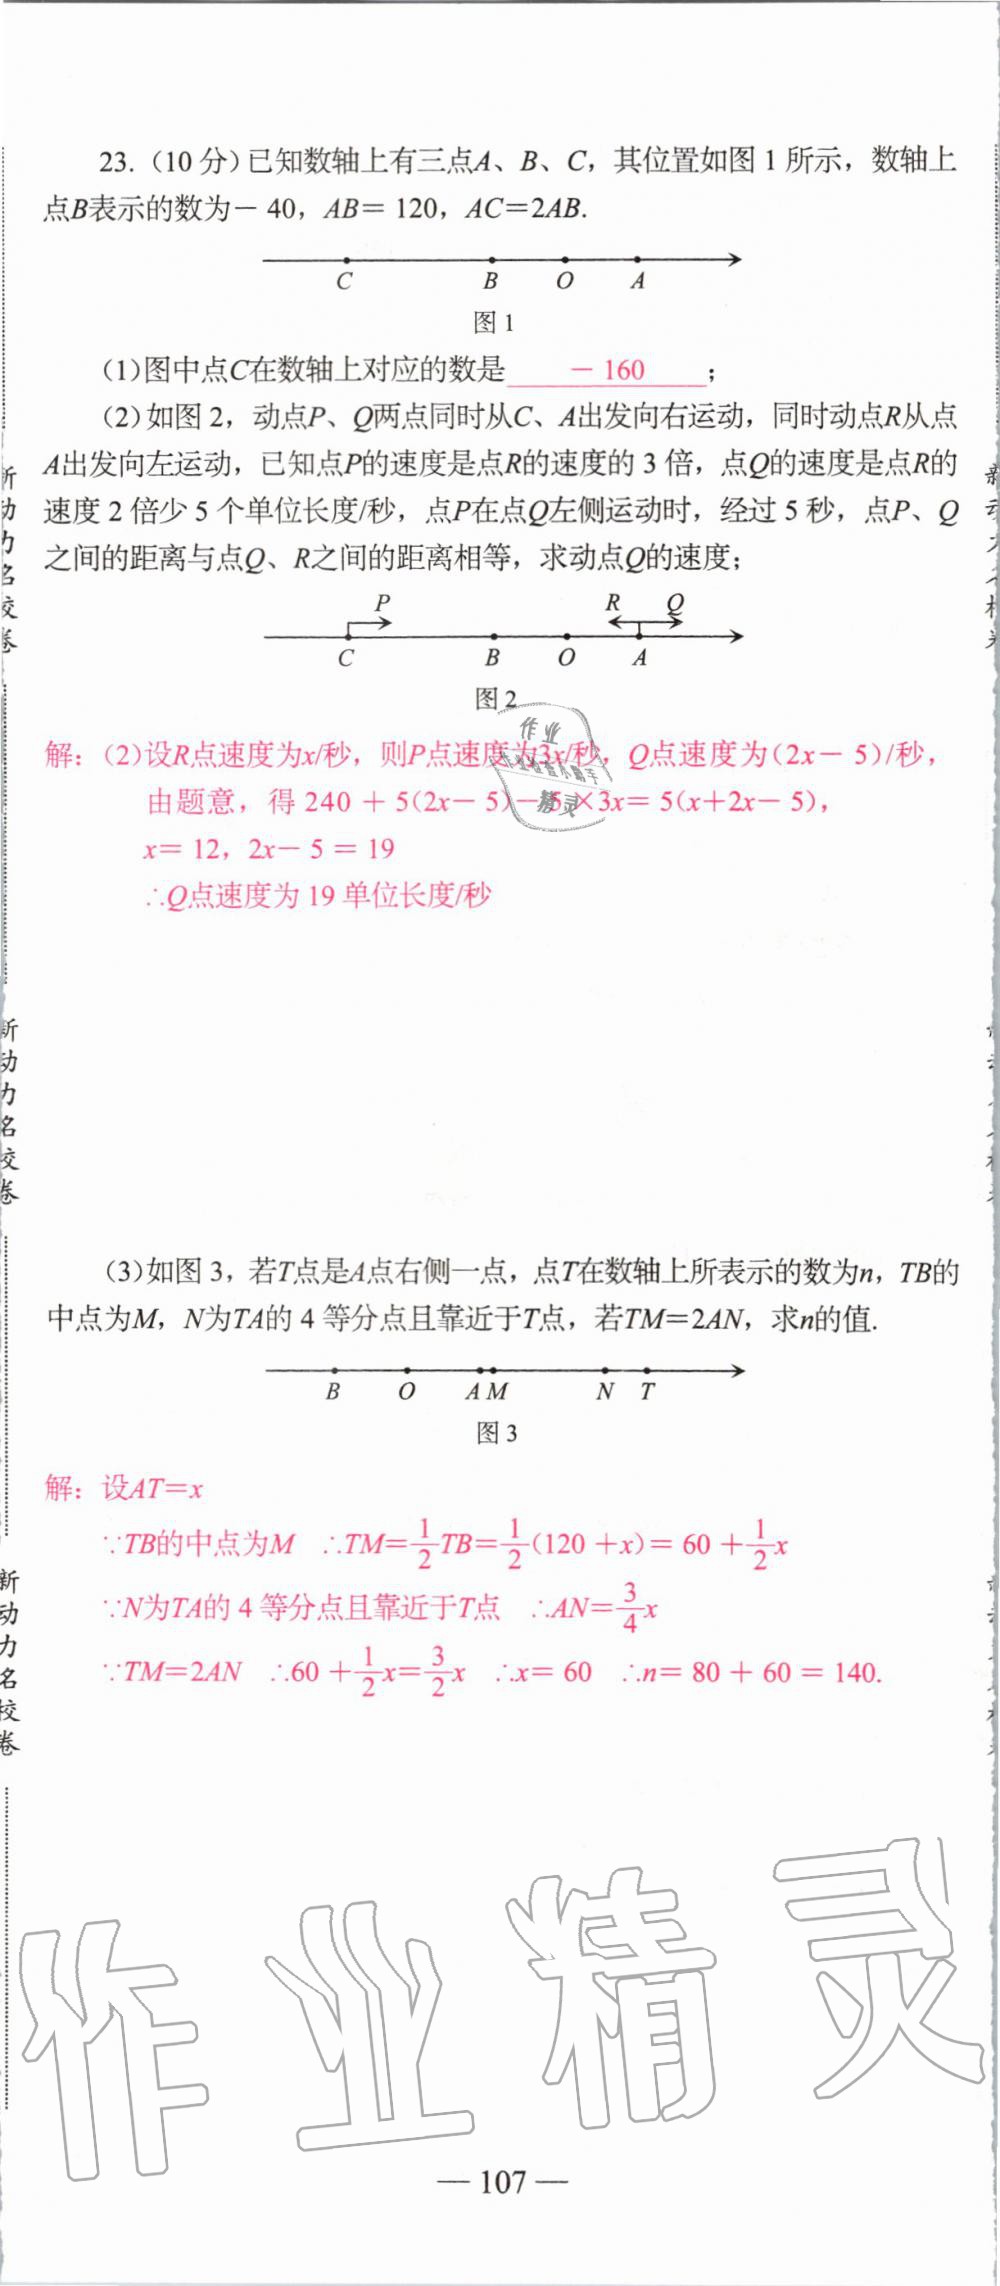 23.(10 分)已知数轴上有三点A、B、C,其位置如图 1 所示,数轴上
点B表示的数为－ 40,AB＝ 120,AC＝2AB.
C B O A
图 1
(1)图中点C在数轴上对应的数是 － 160 ;
(2)如图 2,动点P、Q两点同时从C、A出发向右运动,同时动点R从点
A出发向左运动,已知点P的速度是点R的速度的 3 倍,点Q的速度是点R的
速度 2 倍少 5 个单位长度/秒,点P在点Q左侧运动时,经过 5 秒,点P、Q
之间的距离与点Q、R之间的距离相等,求动点Q的速度;
P R Q
C B O A
图 2
解:(2)设R点速度为x/秒,则P点速度为3x/秒,Q点速度为(2x－ 5)/秒,
由题意,得 240 ＋ 5(2x－ 5)－5 ×3x＝ 5(x＋2x－ 5),
x＝ 12,2x－ 5 ＝ 19
∴Q点速度为 19 单位长度/秒
作业
精灵
(3)如图 3,若T点是A点右侧一点,点T在数轴上所表示的数为n,TB的
中点为M,N为TA的 4 等分点且靠近于T点,若TM＝2AN,求n的值.
B O A M N T
图 3
解:设AT＝x
∵TB的中点为M ∴TM＝1/2TB＝1/2(120 ＋x)＝ 60 ＋1/2x
∵N为TA的 4 等分点且靠近于T点 ∴AN＝3/4x
∵TM＝2AN ∴60 ＋1/2x＝3/2x ∴x＝ 60 ∴n＝ 80 ＋ 60 ＝ 140.
作业精灵
— 107 —
新动力名校卷
新动力名校卷
新动力名校卷